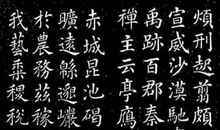 煩刑起翦頗
宣威沙漠馳
禹跡百郡秦
禪主云亭鴈
赤城昆池碣
曠遠緜邈巖
於農務茲稼
我藝黍稷稅